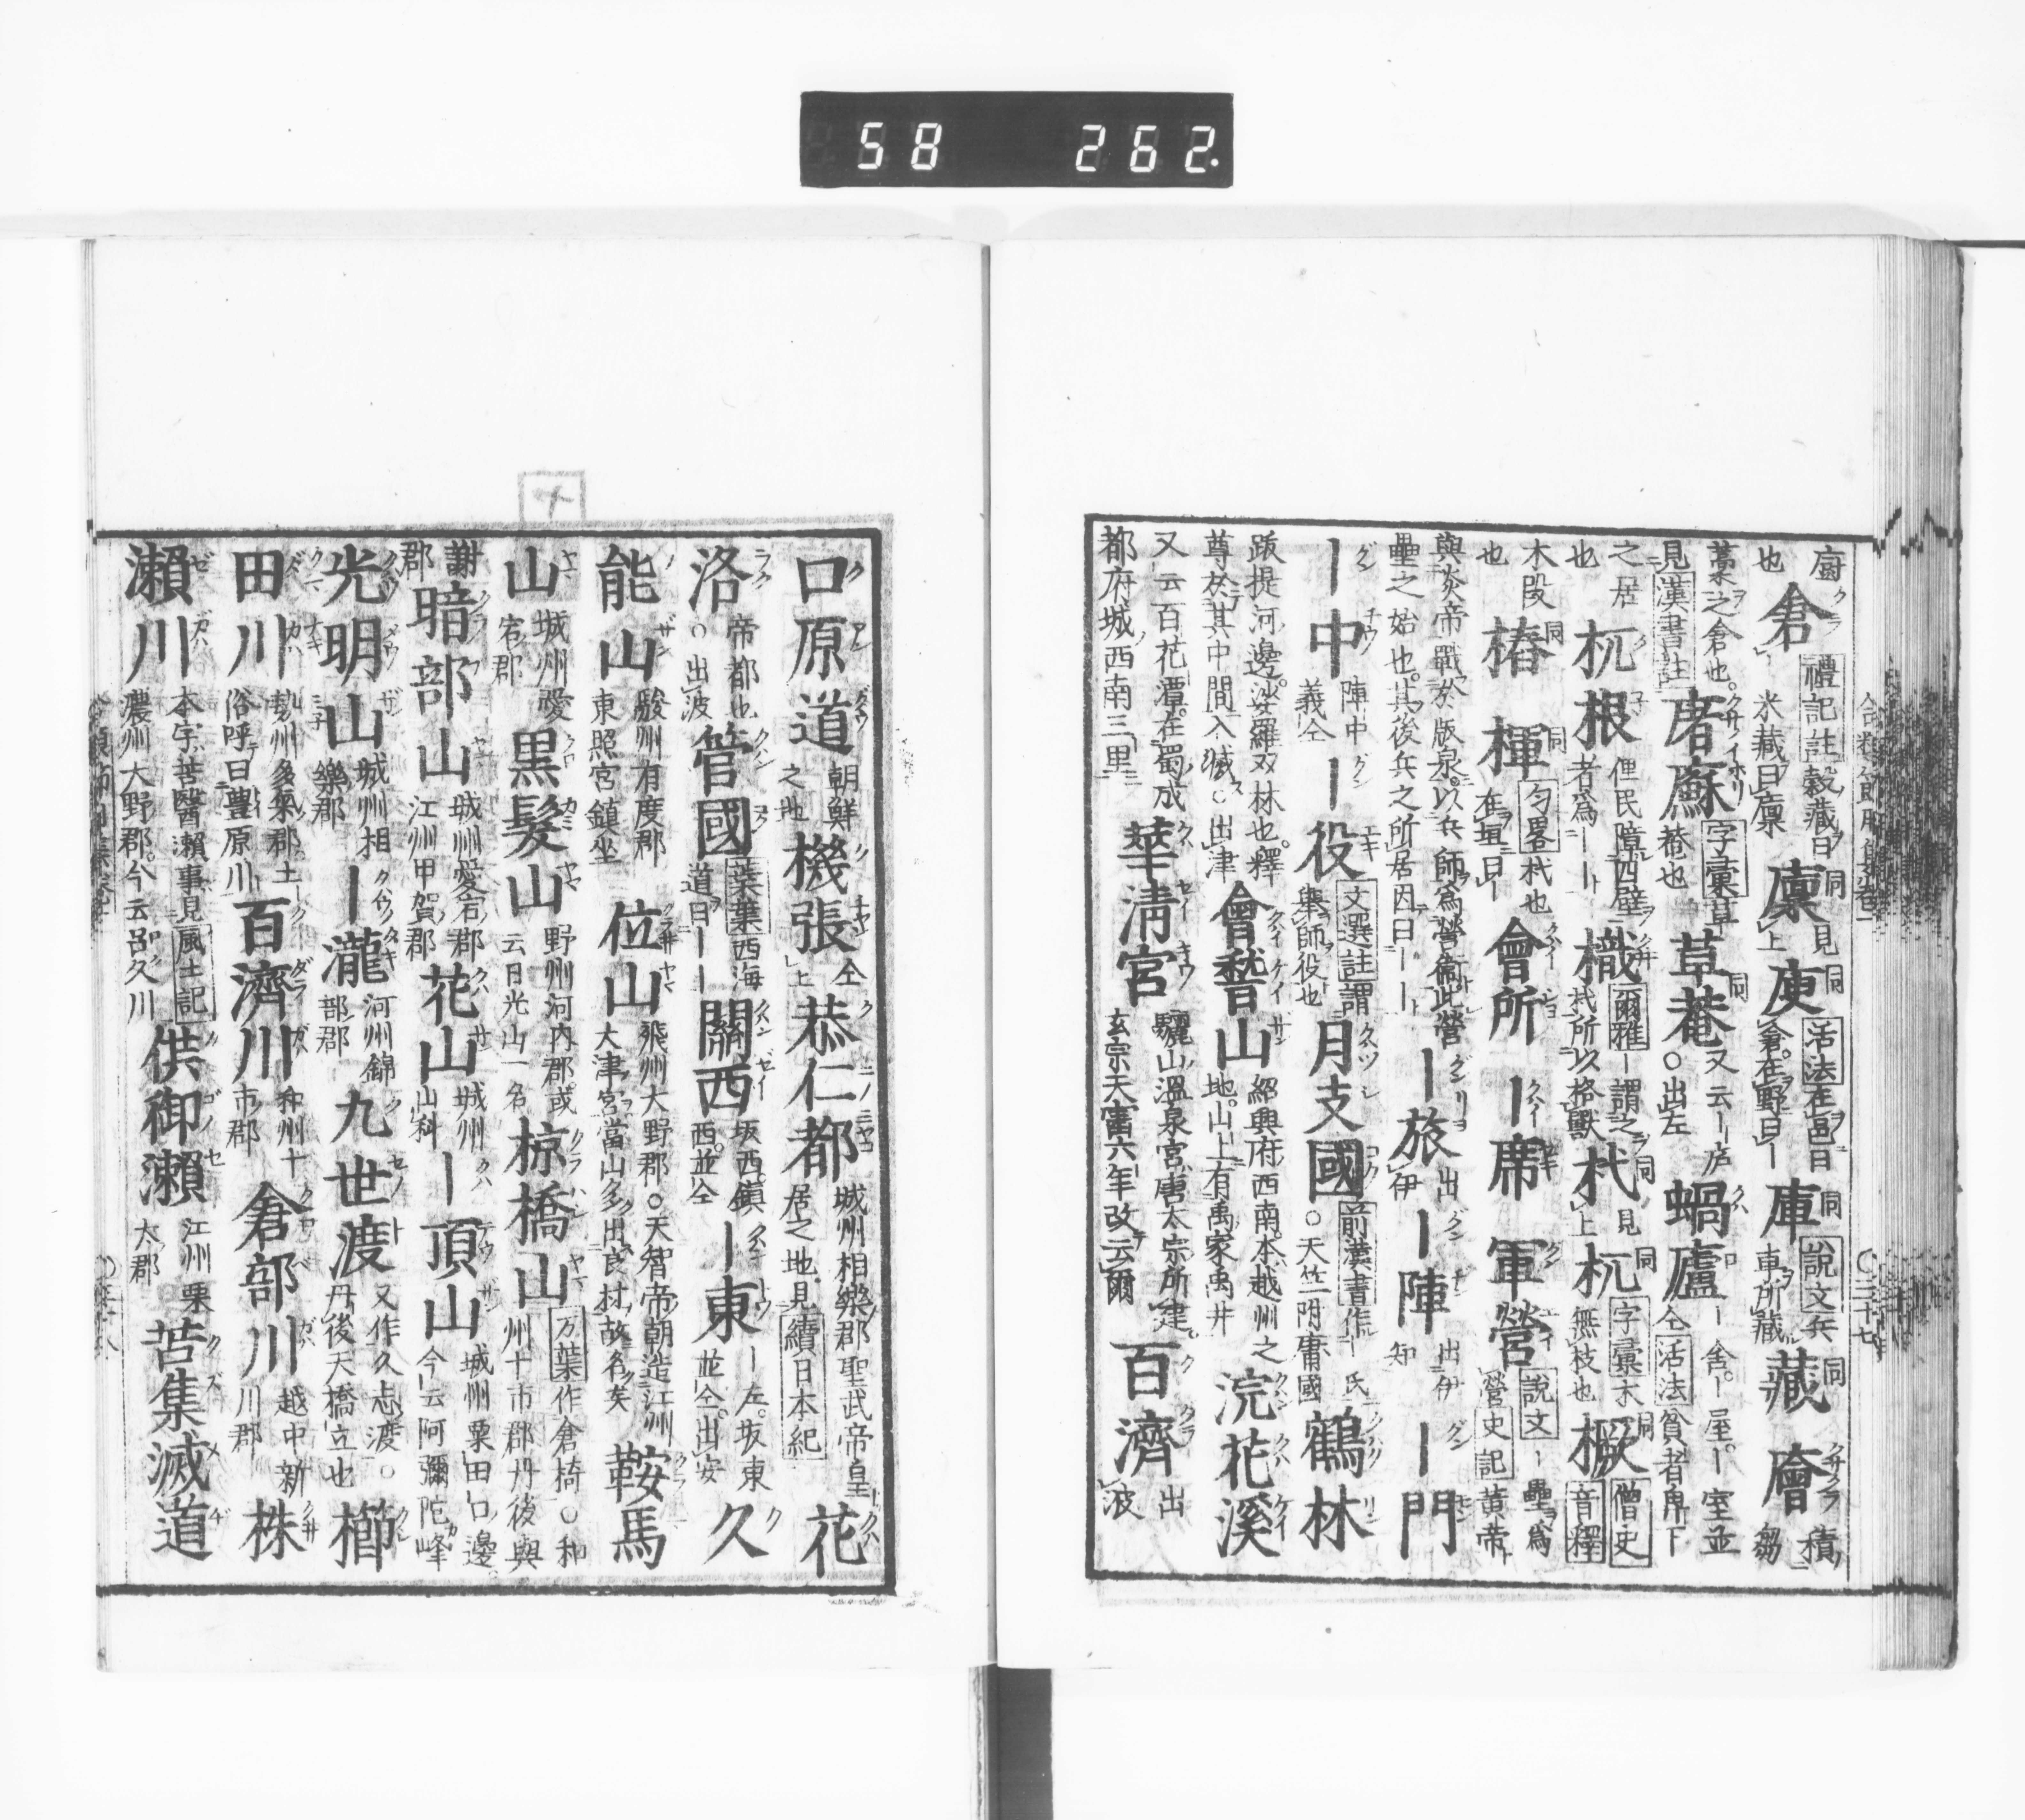 58 262.
廚也 倉 禮記註穀藏曰 米藏曰廩 廩 見上 庾 活法在邑曰倉在野曰― 庫 說文兵車所藏 藏 廥 積芻
藁之倉也 見漢書註 屠蘇 字彙草菴也 草菴 又云―庐○出左 蝸廬 ―舍。―屋。―室並仝 活法貧者舟下
之居也 杭根 俚民障西壁者為―― 樴 爾雅―謂之杙所以格獸 杙 見上 杭 字彙木無枝也 橛 僧史音釋
木段也 樁 楎 匀畧杙也在垣曰― 會所 ―席 軍營 說文―壘為營史記黄帝
與炎帝戰於版泉以兵師為營衞此營壘之始也其後兵之所居因曰―― ―旅 出伊 ―陣 出伊知 ―門
―中 陣中義仝 ―役 文選註謂舉師役也 月支國 前漢書作―氏○天竺附庸國 鶴林
跋提河邊娑羅双林也釋尊於其中間入滅○出津 會稽山 紹興府西南本越州之地山上有禹冢禹井 浣花溪
又云百花潭在蜀成都府城西南三里 華清宮 驪山溫泉宮唐太宗所建玄宗天寶六年改云爾 百濟 出波
口原道 朝鮮之地 機張 仝上 恭仁都 城州相樂郡聖武帝皇居之地見續日本紀 花
洛 帝都也○出波 管國 葉集西海道曰―― 關西 坂西鎮西並仝 ―東 ―左。坂東並仝。出安 久
能山 駿州有度郡東照宮鎮坐 位山 飛州大野郡○天智帝朝造江州大津宮當山多出良材故名矣 鞍馬
山 城州愛宕郡 黒髮山 野州河内郡或云日光山一名 椋橋山 万葉作倉椅○和州十市郡丹後與
謝郡 暗部山 城州愛宕郡江州甲賀郡 花山 城州山科 ―頂山 城州粟田口邊今云阿彌陀峰
光明山 城州相樂郡 ―瀧 河州錦部郡 九世渡 又作久志渡○丹後天橋立也 櫛
田川 勢州多氣郡土俗呼曰豊原川 百濟川 和州十市郡 倉部川 越中新川郡 株
瀬川 本字苦醫瀬事見風土記濃州大野郡今云呂久川 供御瀬 江州栗太郡 苦集滅道